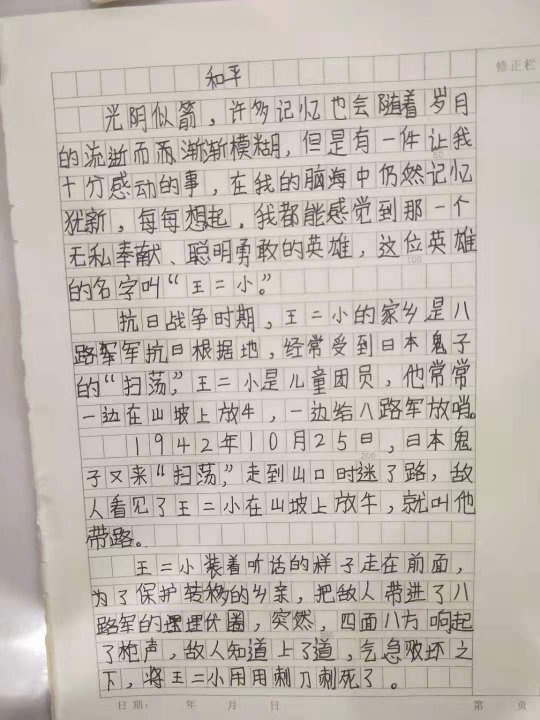 和平
修正栏
光阴似箭，许多记忆也会随着岁月
的流逝而而渐渐模糊，但是有一件让我
十分感动的事，在我的脑海中仍然记忆
犹新，每每想起，我都能感觉到那一个
无私奉献、聪明勇敢的英雄，这位英雄
100
的名字叫“王二小。”
抗日战争时期，王二小的家乡是八
路军军抗日根据地，经常受到日本鬼子
的“扫荡”，王二小是儿童团员，他常常
一边在山坡上放牛，一边给八路军放哨。
1942年10月25日，日本鬼
200
子又来“扫荡”，走到山口时迷了路，敌
人看见了王二小在山坡上放牛，就叫他
带路。
王二小装着听话的样子走在前面，
为了保护转移的乡亲，把敌人带进了八
路军的埋埋伏圈，突然，四面八方响起
300
了枪声，敌人知道上了道，气急败坏之
下，将王二小用用刺刀刺死了。
日期： 年 月 日 第 页